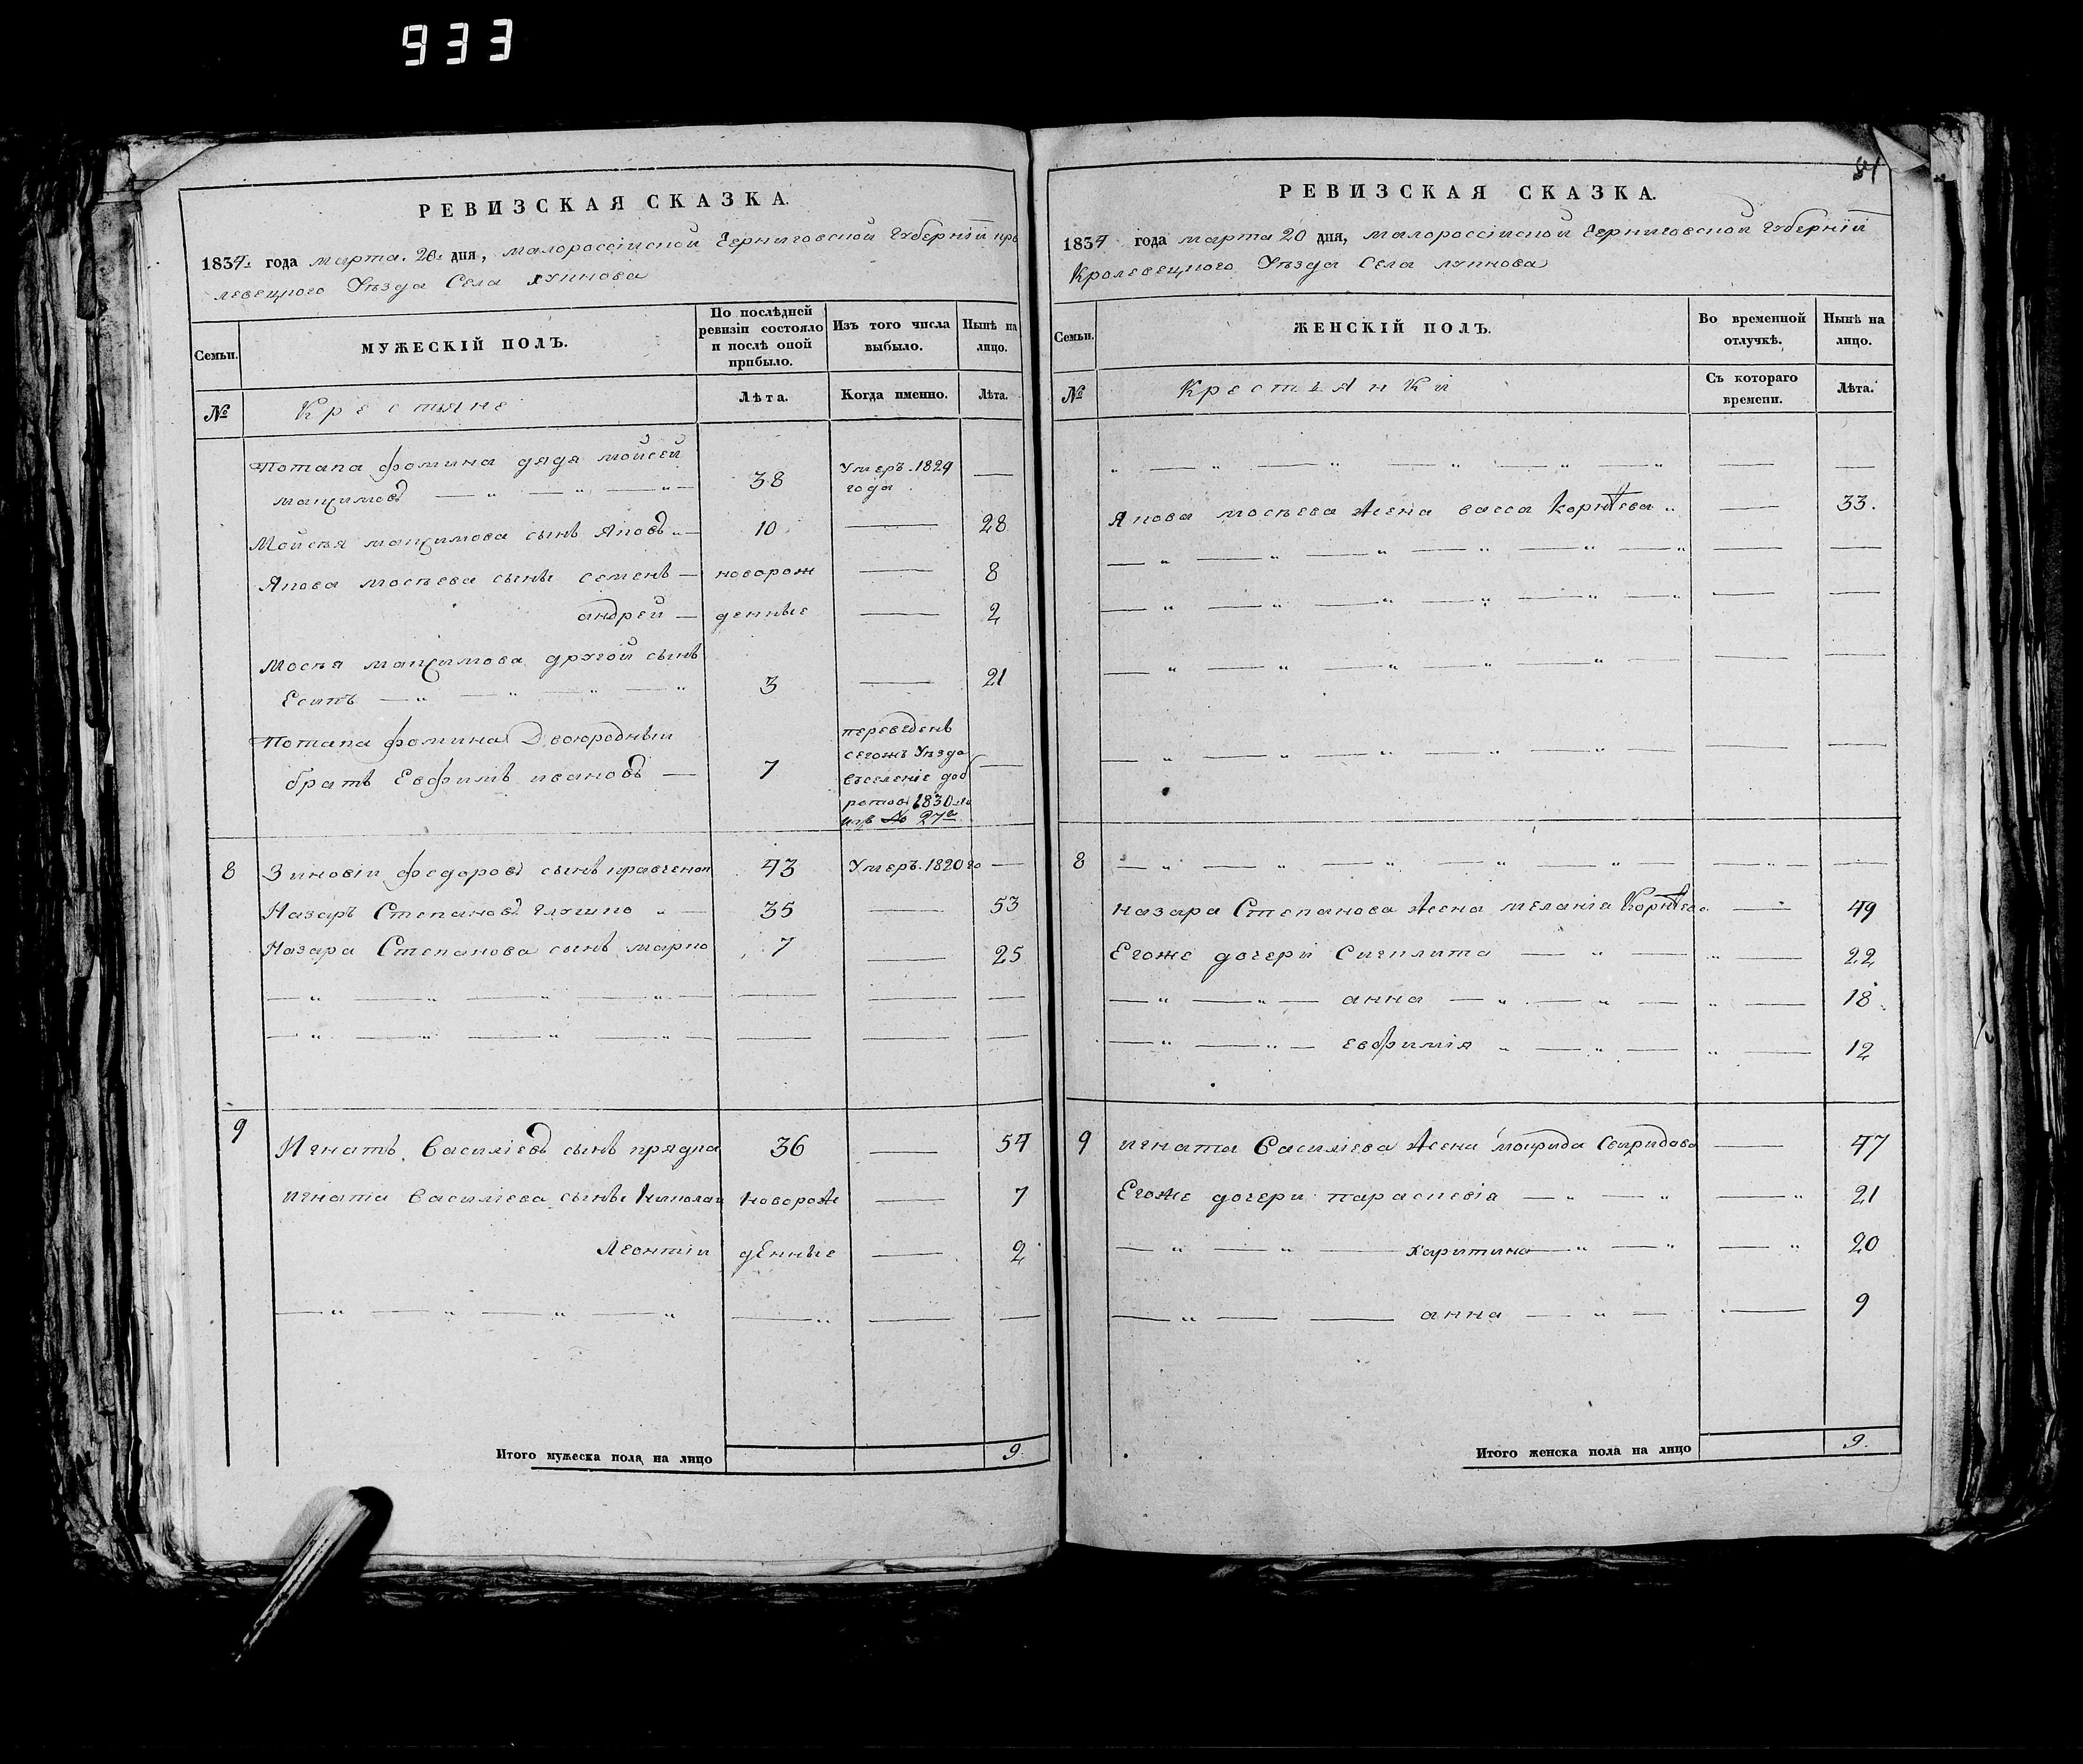 933
81
РЕВИЗСКАЯ СКАЗКА.
1834. года марта. 20. дня, малороссійской Черниговской Губерніи кро
левецкого Уѣзда Села лукнова
Семьи.
МУЖЕСКІЙ ПОЛЪ.
По послѣдней ревизіи состояло и послѣ оной прибыло.
Изъ того числа выбыло.
Нынѣ на лицо.
№
Крестяне
Лѣта.
Когда именно.
Лѣта.
Потапа фомина дядя мойсей
максимовъ 38 Умеръ. 1829 года —
Мойсѣя максимова сынъ яковъ 10 — 28
Якова мосѣева сыны семенъ — новорож — 8
андрей — денные — 2
Мосѣя максимова другой сынъ
Есипъ 3 — 21
Потапа фомина Двоюродный
братъ Евфимъ ивановъ — 7 переведенъ
сегожъ Уѣзда
1830
№ 27
8 Зиновіи федоровъ сынъ кравченок 43 Умеръ. 1820 го —
Назаръ Степановъ глушко 35 — 53
Назара Степанова сынъ марко 7 — 25
9 Игнатъ Василіевъ сынъ прядка 36 — 54
игната Василіева сыны Николаи новорож — 7
Леонтіи денные — 2
Итого мужеска пола на лицо 9.
РЕВИЗСКАЯ СКАЗКА.
1834 года марта 20 дня, малороссійской Черниговской Губерніи
Кролевецкого Уѣзда Села лукнова
Семьи.
ЖЕНСКІЙ ПОЛЪ.
Во временной отлучкѣ.
Нынѣ на лицо.
№
Крестьянки
Съ котораго времени.
Лѣта.
Якова мосѣева жена васса Корнѣева — 33.
8
назара Степанова жена меланія Корнѣева — 49
Егоже дочери Сигклита 22
анна 18
евфимія 12
9 игната Василіева жена Свиридова — 47
Егоже дочери параскевія 21
харитина 20
анна 9
Итого женска пола на лицо 9.